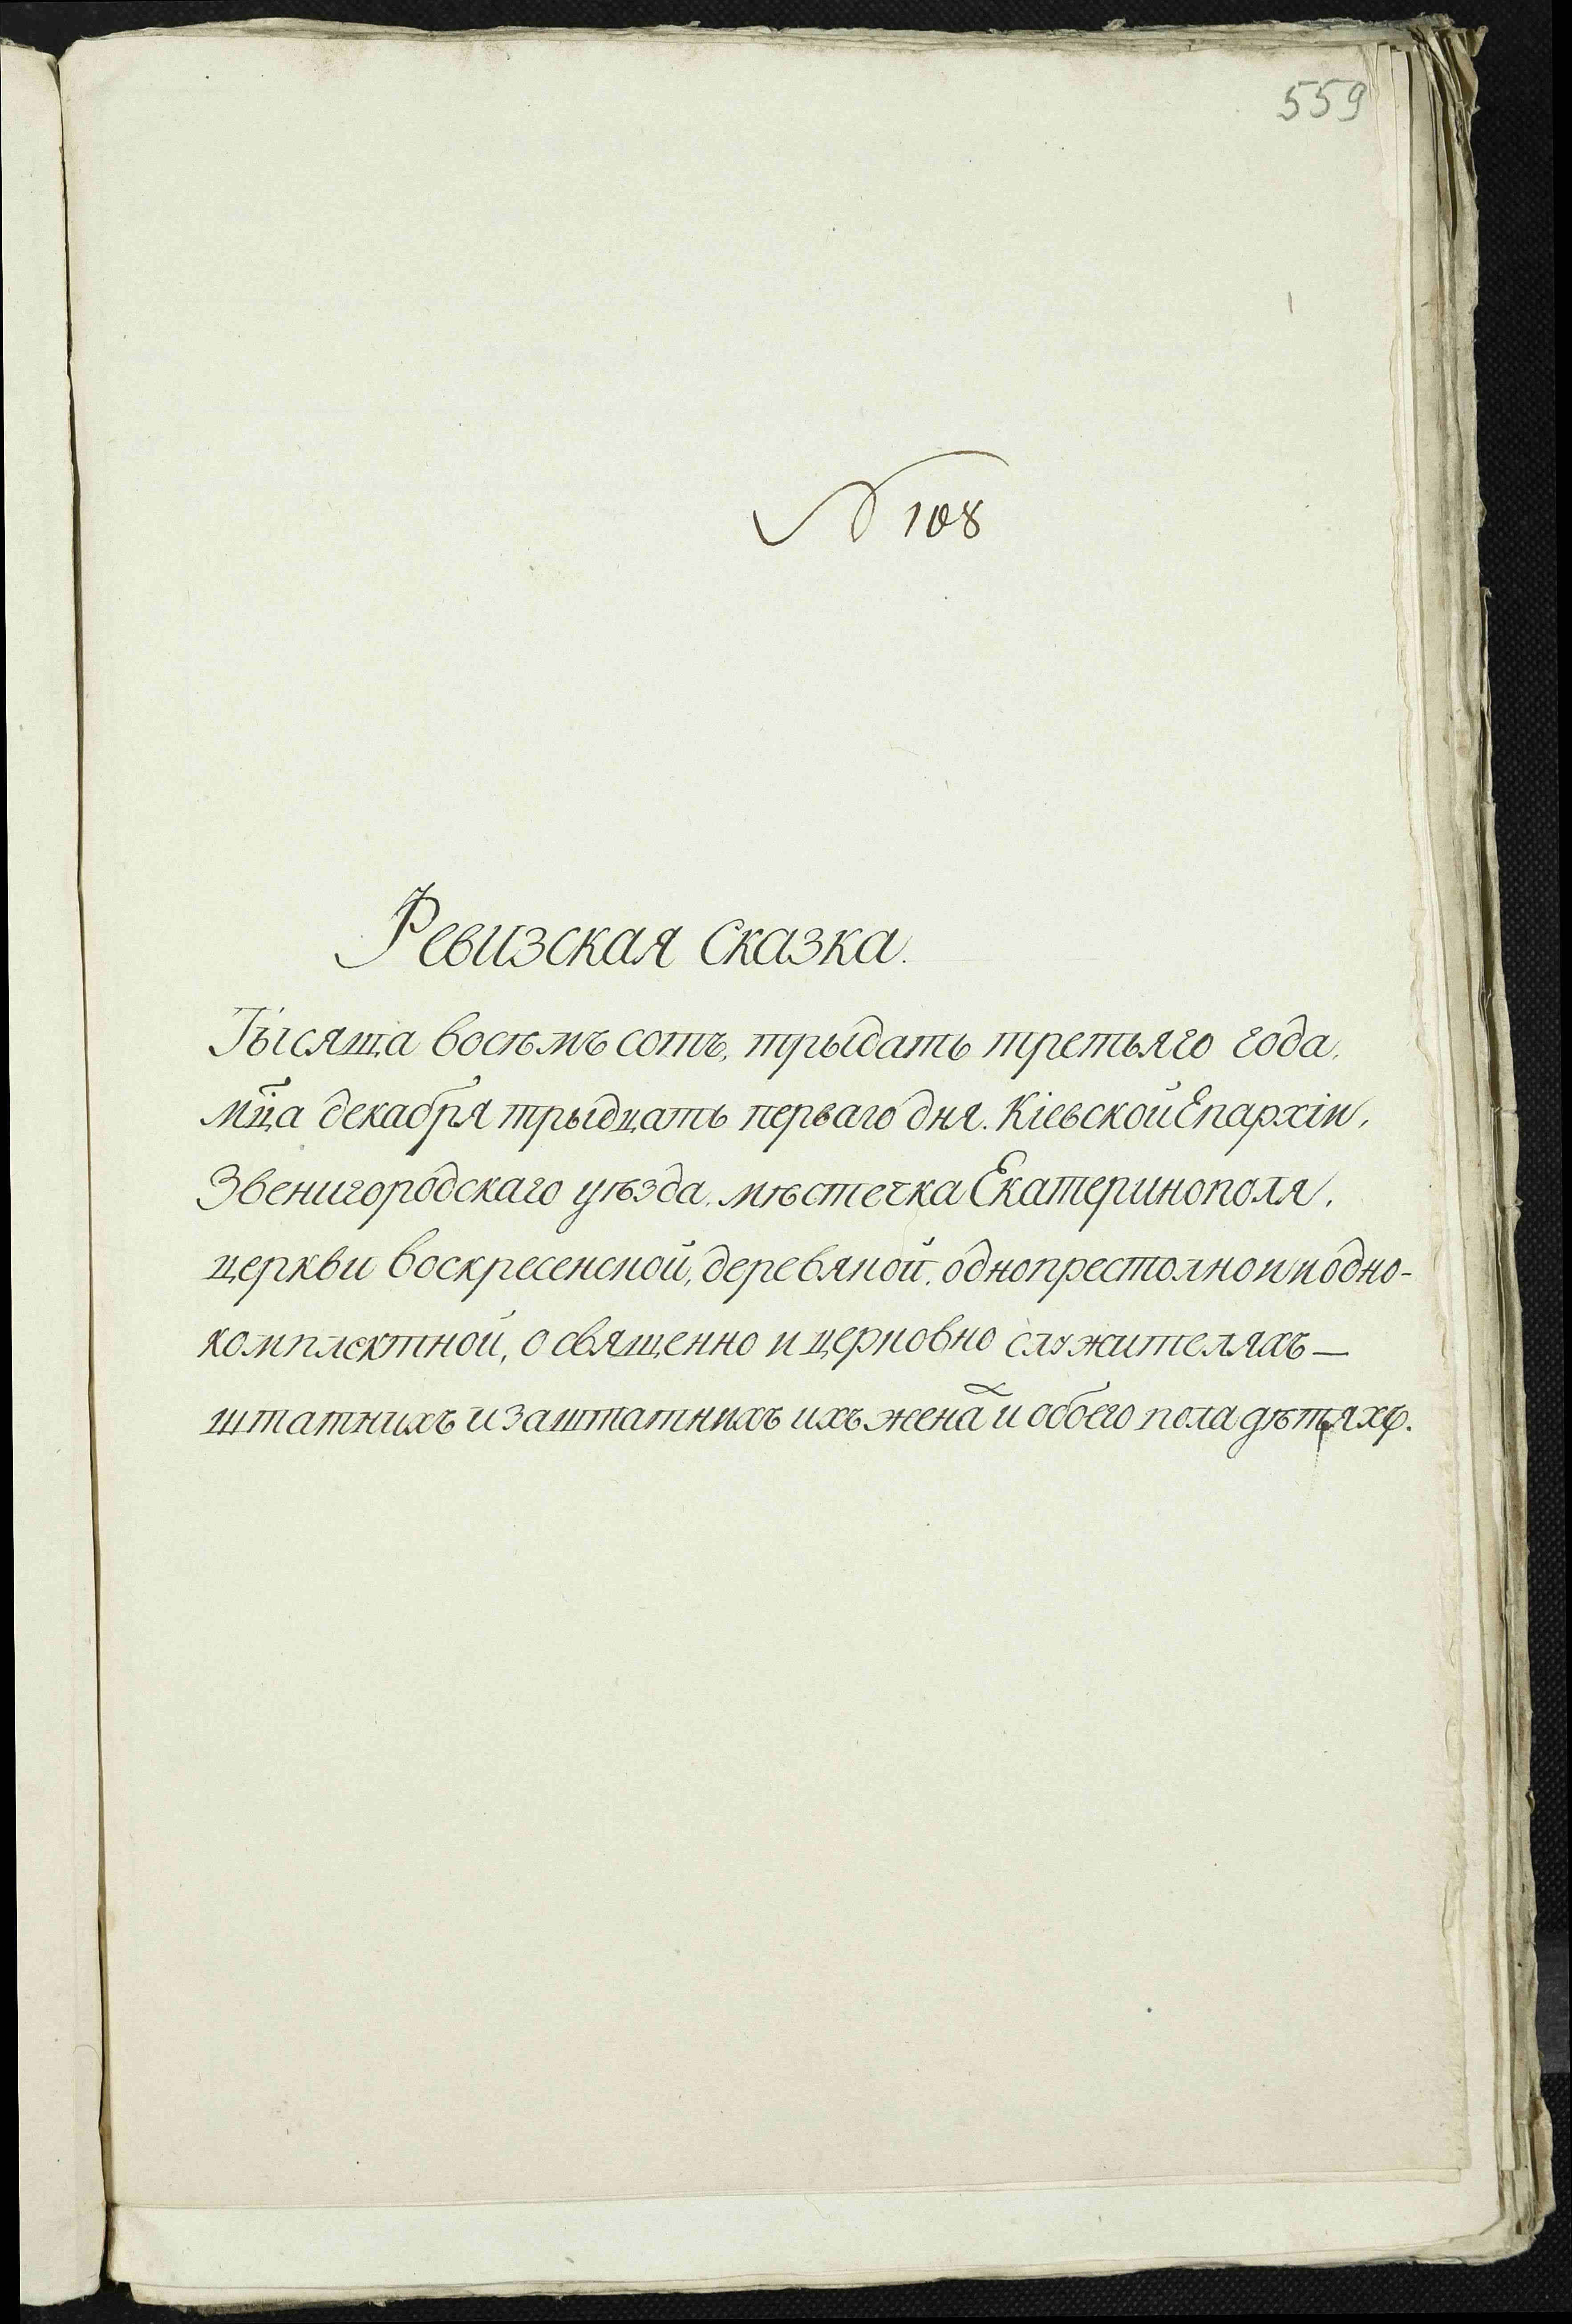 559
N 108
Ревизская Сказка.
Тысяща восѣмъ сотъ, трыдать третьяго года,
мца декабря трыдцать перваго дня. Кіевской Епархіи,
Звенигородскаго уѣзда, мѣстечка Екатеринополя,
церкви воскресенской, деревяной, однопрестолнои и одно-
комплектной, о священно и церковно служителяхъ —
штатнихъ и заштатнихъ ихъ жена и обоего пола дѣтяхъ.